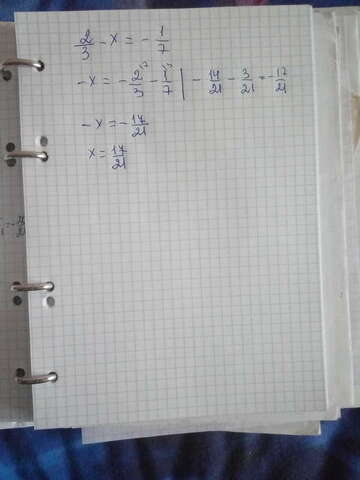 2/3 - x = - 1/7
-x = - 2/3 - 1/7 | - 14/21 - 3/21 = - 17/21
-x = - 17/21
x = 17/21